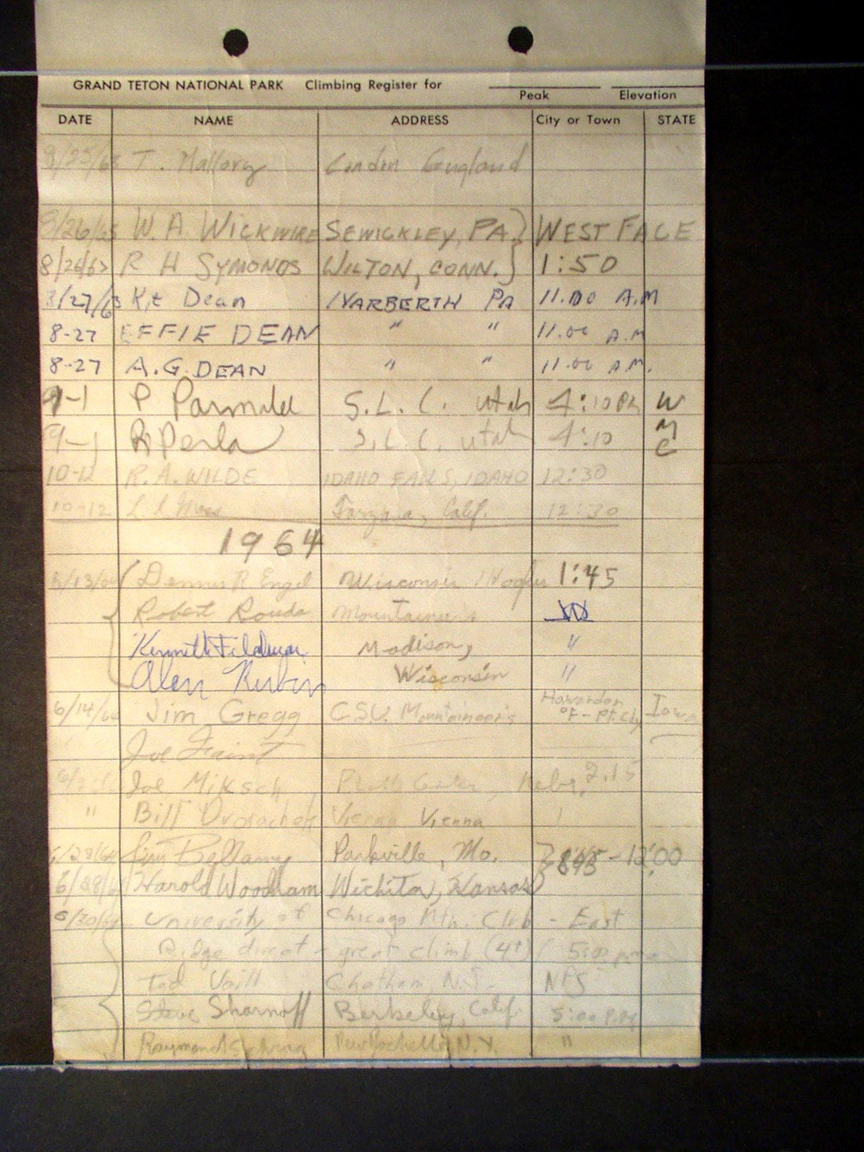 GRAND TETON NATIONAL PARK Climbing Register for
Peak Elevation
DATE NAME ADDRESS City or Town STATE
8/25/63 T. Mallory London England
8/26/63 W. A. WICKWIRE SEWICKLEY, PA } WEST FACE
8/26/63 R H SYMONDS WILTON, CONN. } 1:50
8/27/63 Kit Dean NARBERTH PA 11.00 A.M
8-27 EFFIE DEAN " " 11.00 A.M
8-27 A.G. DEAN " " 11.00 A.M.
9-1 P Parmalee S.L.C. Utah 4:10 PM W
9-1 R Perla S.L.C. Utah 4:10 M C
10-12 R.A. WILDE IDAHO FALLS, IDAHO 12:30
10-12 Tarzana, Calif. 12:30
1964
Dennis R Engel Wisconsin Hoofers 1:45
Robert Mountaineer's
Kenneth Madison, "
Alan Rubin Wisconsin "
6/14/64 Jim Gregg C.S.U. Mountaineer's Hawarden Iowa
Joe
Joe Miksch Nebr. 2.15
" Bill Vienna Vienna
6/28/64 Jim Bellamy Parkville, Mo. } - 12:00
6/28/64 Harold Woodham Wichita, Kansas
6/30/64 University of Chicago Mtn. Club - East
Ridge direct - great climb (4th) 5:00 pm
Ted Vaill Chatham, N.J. NPS
Steve Sharnoff Berkeley, Calif 5:00 P.M
Raymond New Rochelle, N.Y. "